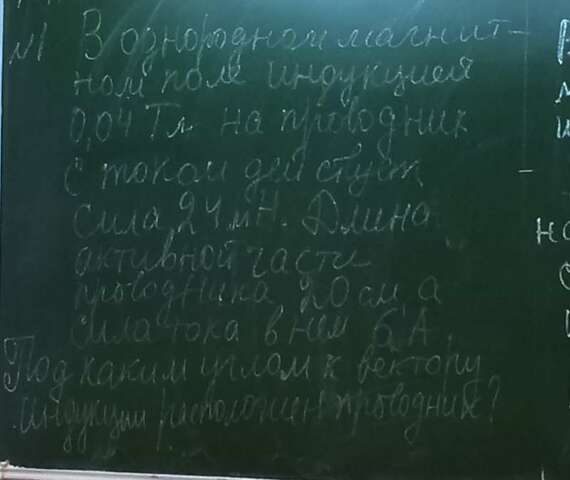 №1 В однородном магнит-
ном поле индукцией
0,04 Тл на проводник
с током действует
сила 24 мН. Длина
активной части
проводника 20 см, а
сила тока в нём 6 А.
Под каким углом к вектору
индукции расположен проводник?